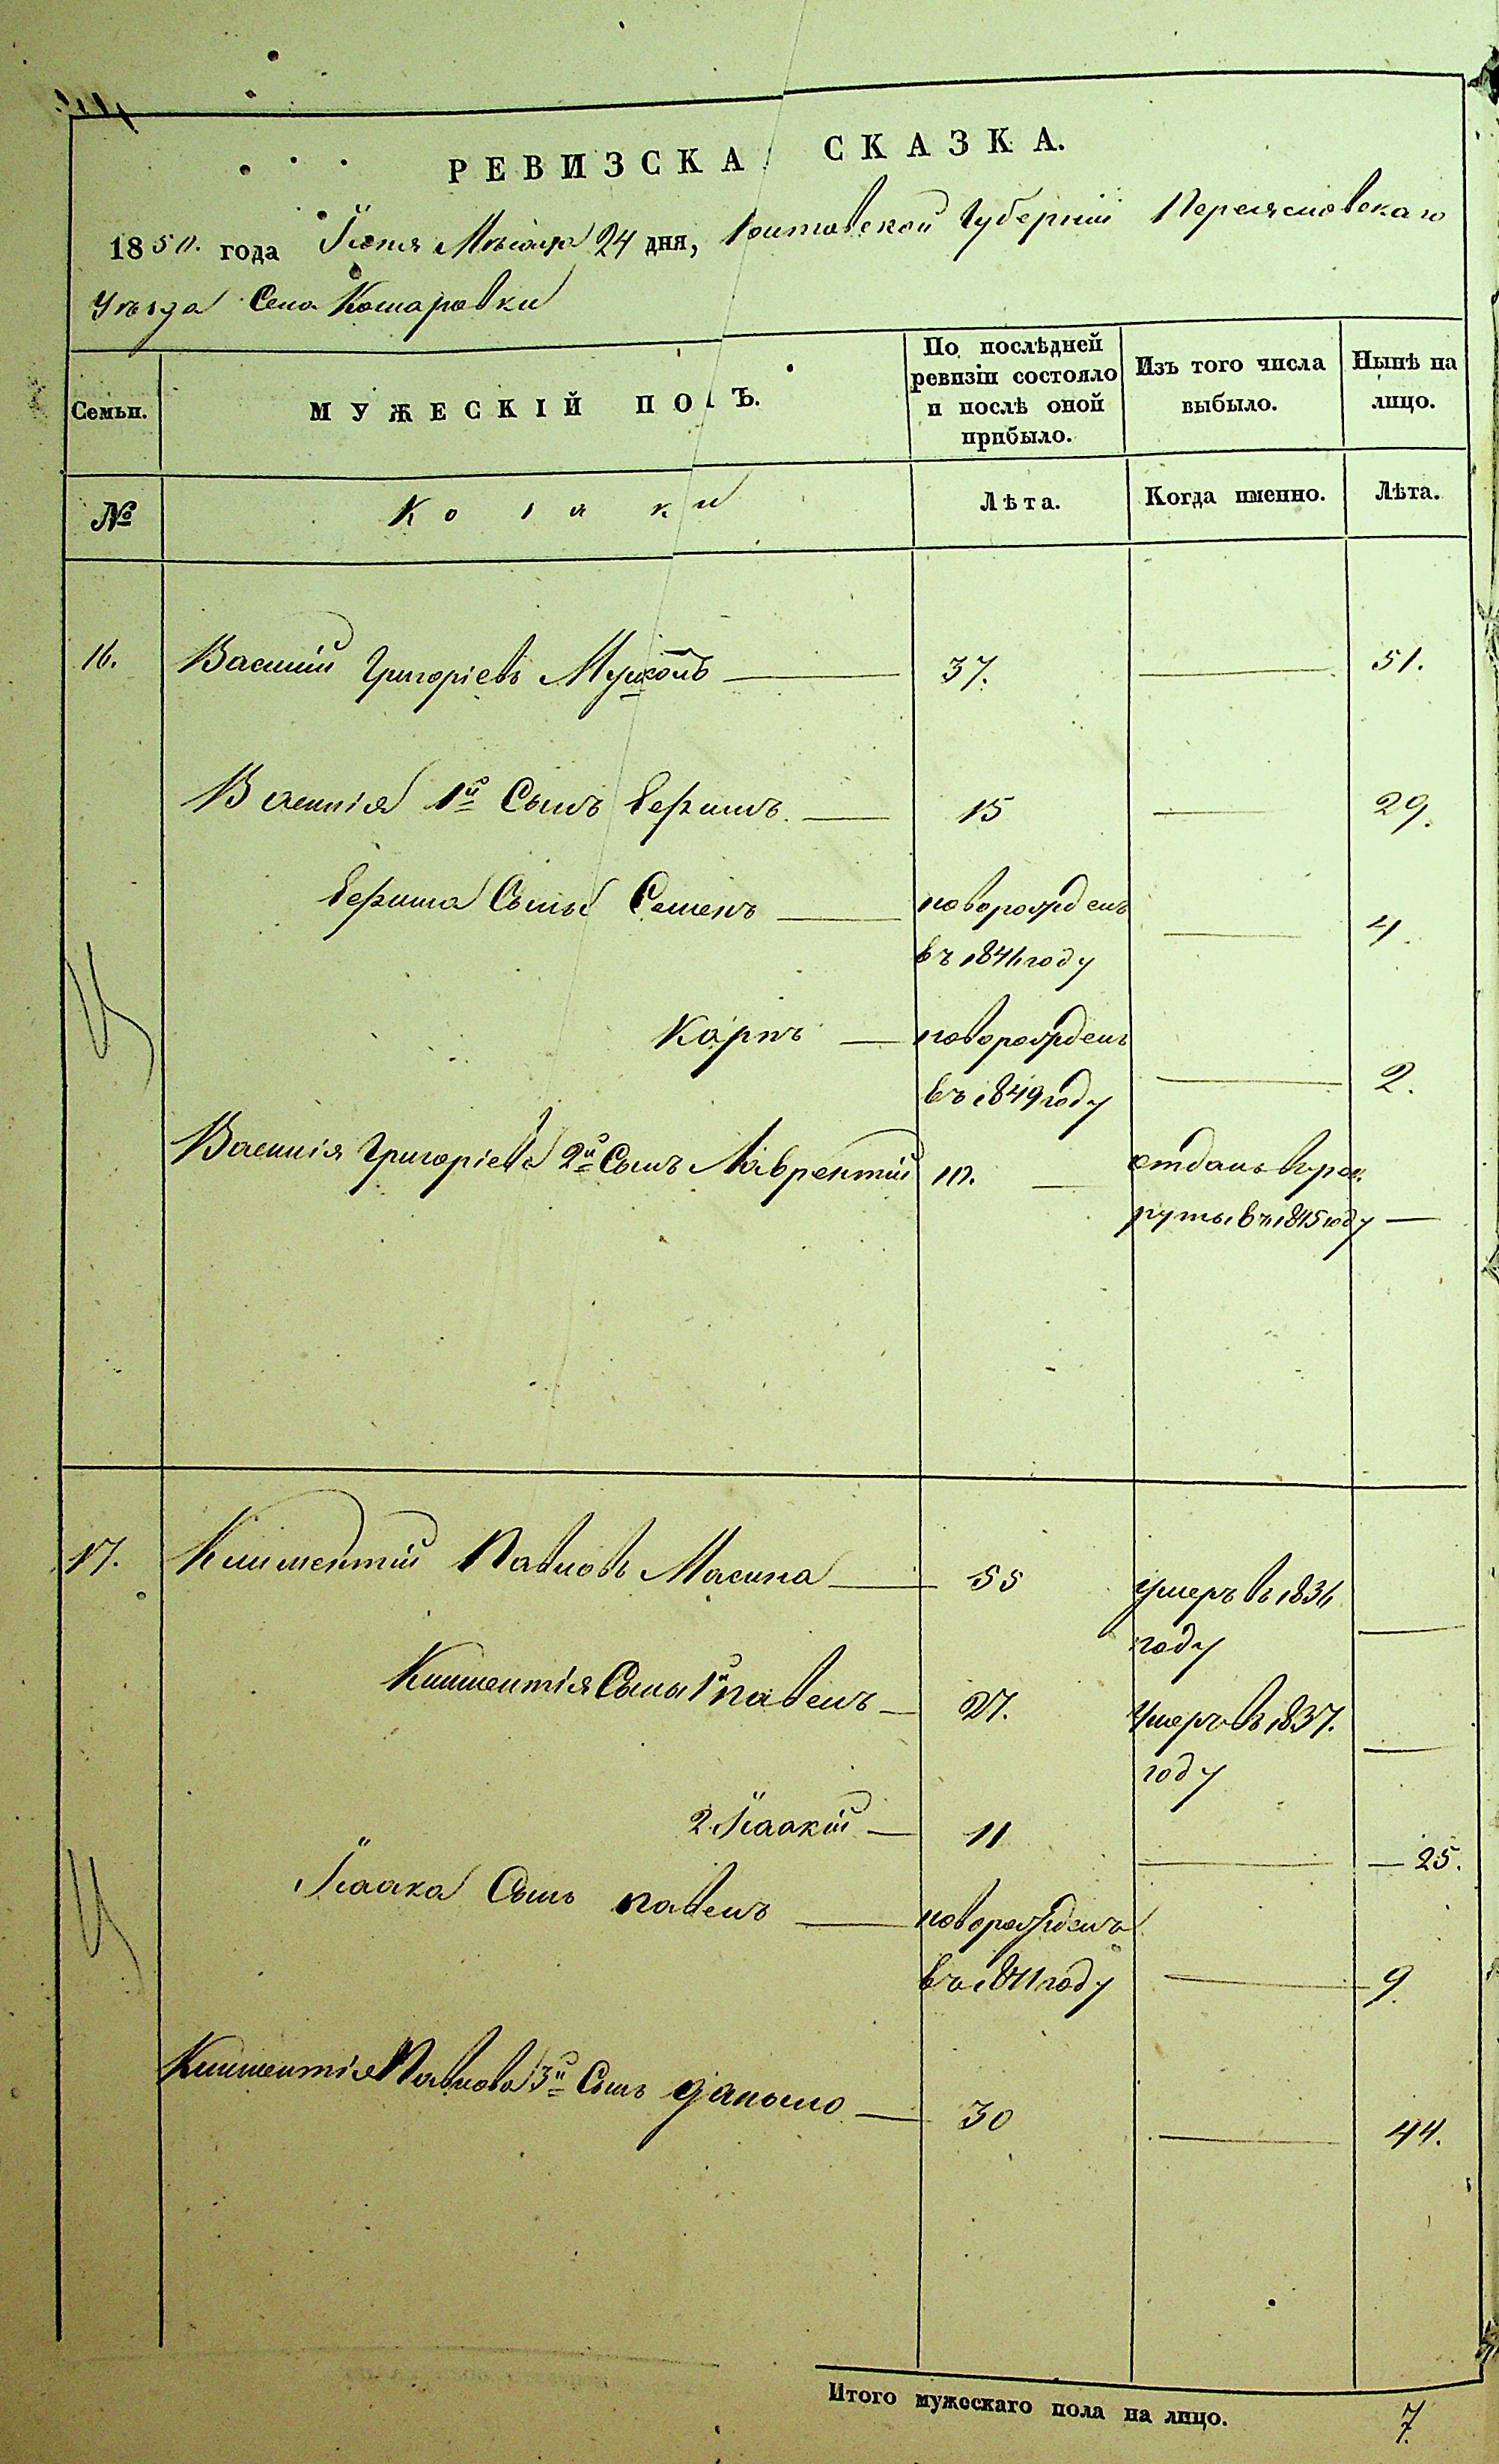 РЕВИЗСКА СКАЗКА.
1850. года Іюня Мѣсяца 24 дня, Полтавской Губерніи Переяславскаго
Уѣзда Села Комаровки
Семьи. МУЖЕСКІЙ ПОЛЪ. По послѣдней ревизіи состояло и послѣ оной прибыло. Изъ того числа выбыло. Нынѣ на лицо.
№ Козаки Лѣта. Когда именно. Лѣта.
16. Василій Григоріевъ 37. 51.
Василія 1й Сынъ 15 29.
Сыны Семенъ новорожденъ 4.
въ 1846 году
Карпъ новорожденъ
въ 1849 году 2.
Василія Григоріева 2й Сынъ Лаврентій 10. отданъ в рек
руты въ 1845 году
17. Климентій Павловъ Масина 55 умеръ въ 1836
году
Климентія Сыны 1й Павелъ 27. Умеръ въ 1837.
году
2. Ісаакій 11 25.
Ісаака Сынъ Павелъ новорожденъ
въ 1841 году 9.
Климентія Павлова 3й Сынъ Данило 30 44.
Итого мужескаго пола на лицо. 7.